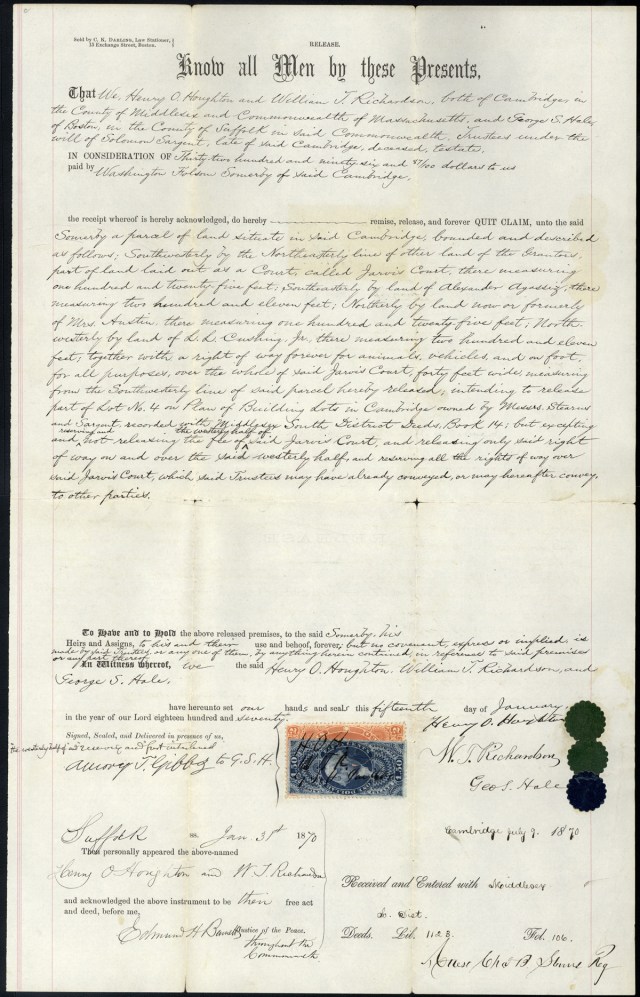 Sold by C. K. DARLING, Law Stationer,
15 Exchange Street, Boston.
RELEASE.
Know all Men by these Presents,
That We, Henry O. Houghton and William T. Richardson, both of Cambridge, in
the County of Middlesex and Commonwealth of Massachusetts, and George S. Hale,
of Boston, in the County of Suffolk in said Commonwealth, Trustees under the
will of Solomon Sargent, late of said Cambridge, deceased, testate,
IN CONSIDERATION OF Thirty two hundred and ninety six and 87/100 dollars to us
paid by Washington Folsom Somerby of said Cambridge,
the receipt whereof is hereby acknowledged, do hereby remise, release, and forever QUIT CLAIM, unto the said
Somerby a parcel of land situate in said Cambridge, bounded and described
as follows; Southwesterly by the Northeasterly line of other land of the Grantors,
part of land laid out as a Court, called Jarvis Court, there measuring
one hundred and twenty five feet; Southeasterly by land of Alexander Agassiz, there
measuring two hundred and eleven feet; Northerly by land now or formerly
of Mrs. Austin, there measuring one hundred and twenty five feet; North
westerly by land of L. L. Cushing, Jr, there measuring two hundred and eleven
feet; together with a right of way forever for animals, vehicles, and on foot,
for all purposes, over the whole of said Jarvis Court, forty feet wide, measuring
from the Southwesterly line of said parcel hereby released; intending to release
part of Lot No. 4 on Plan of Building Lots in Cambridge owned by Messrs. Stearns
and Sargent, recorded with Middlesex South District Deeds, Book 14; but excepting
reserving and the westerly half of
and, not releasing the fee of said Jarvis Court, and releasing only said right
of way on and over the said westerly half, and reserving all the rights of way over
said Jarvis Court, which said Trustees may have already conveyed, or may hereafter convey,
to other parties.
To Have and to Hold the above released premises, to the said Somerby, his
Heirs and Assigns, to his and their use and behoof, forever; but no covenant, express or implied, is
made by said Trustees, or any one of them, by anything herein contained, in reference to said premises
or any part thereof.
In Witness whereof, we the said Henry O. Houghton, William T. Richardson, and
George S. Hale,
have hereunto set our hands and seals this fifteenth day of January
in the year of our Lord eighteen hundred and seventy.
Henry O. Houghton
Signed, Sealed, and Delivered in presence of us,
the westerly half of and reserving and first interlined
Amory T. Gibbs to G.S.H.
W. T. Richardson
Geo. S. Hale
H.O.H.
Suffolk ss. Jan 31st 1870
Then personally appeared the above-named
Henry O Houghton and W T Richardson
and acknowledged the above instrument to be their free act
and deed, before me,
Justice of the Peace.
throughout the
Commonwealth
Cambridge July 9. 1870
Received and Entered with Middlesex
So. Dist.
Deeds. Lib. 1123. Fol. 106.
Attest Cha B Stevens Reg